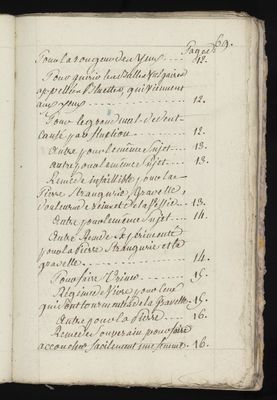 69.
Pages
Pour la rougeur des yeux 12.
Pour guerir les dalles vulgairem
appellées qui viennent
aux yeux 12.
Pour le grand mal de dent
causé par fluxion 12.
Autre pour le même sujet 13.
Autre pour le même sujet 13.
Remede infaillible pour la
Pierre Strangurie, Gravelle,
douleur de reins et de la Vessie 13.
Autre pour le même sujet 14.
Autre Remede experimenté
pour la Pierre Strangurie et la
gravelle 14.
Pour faire Uriner 15.
Régime de Vivre pour ceux
qui sont tourmentés de la Gravelle 15.
Autre pour la Pierre 16.
Remede Souverain pour faire
accoucher facilement une femme 16.